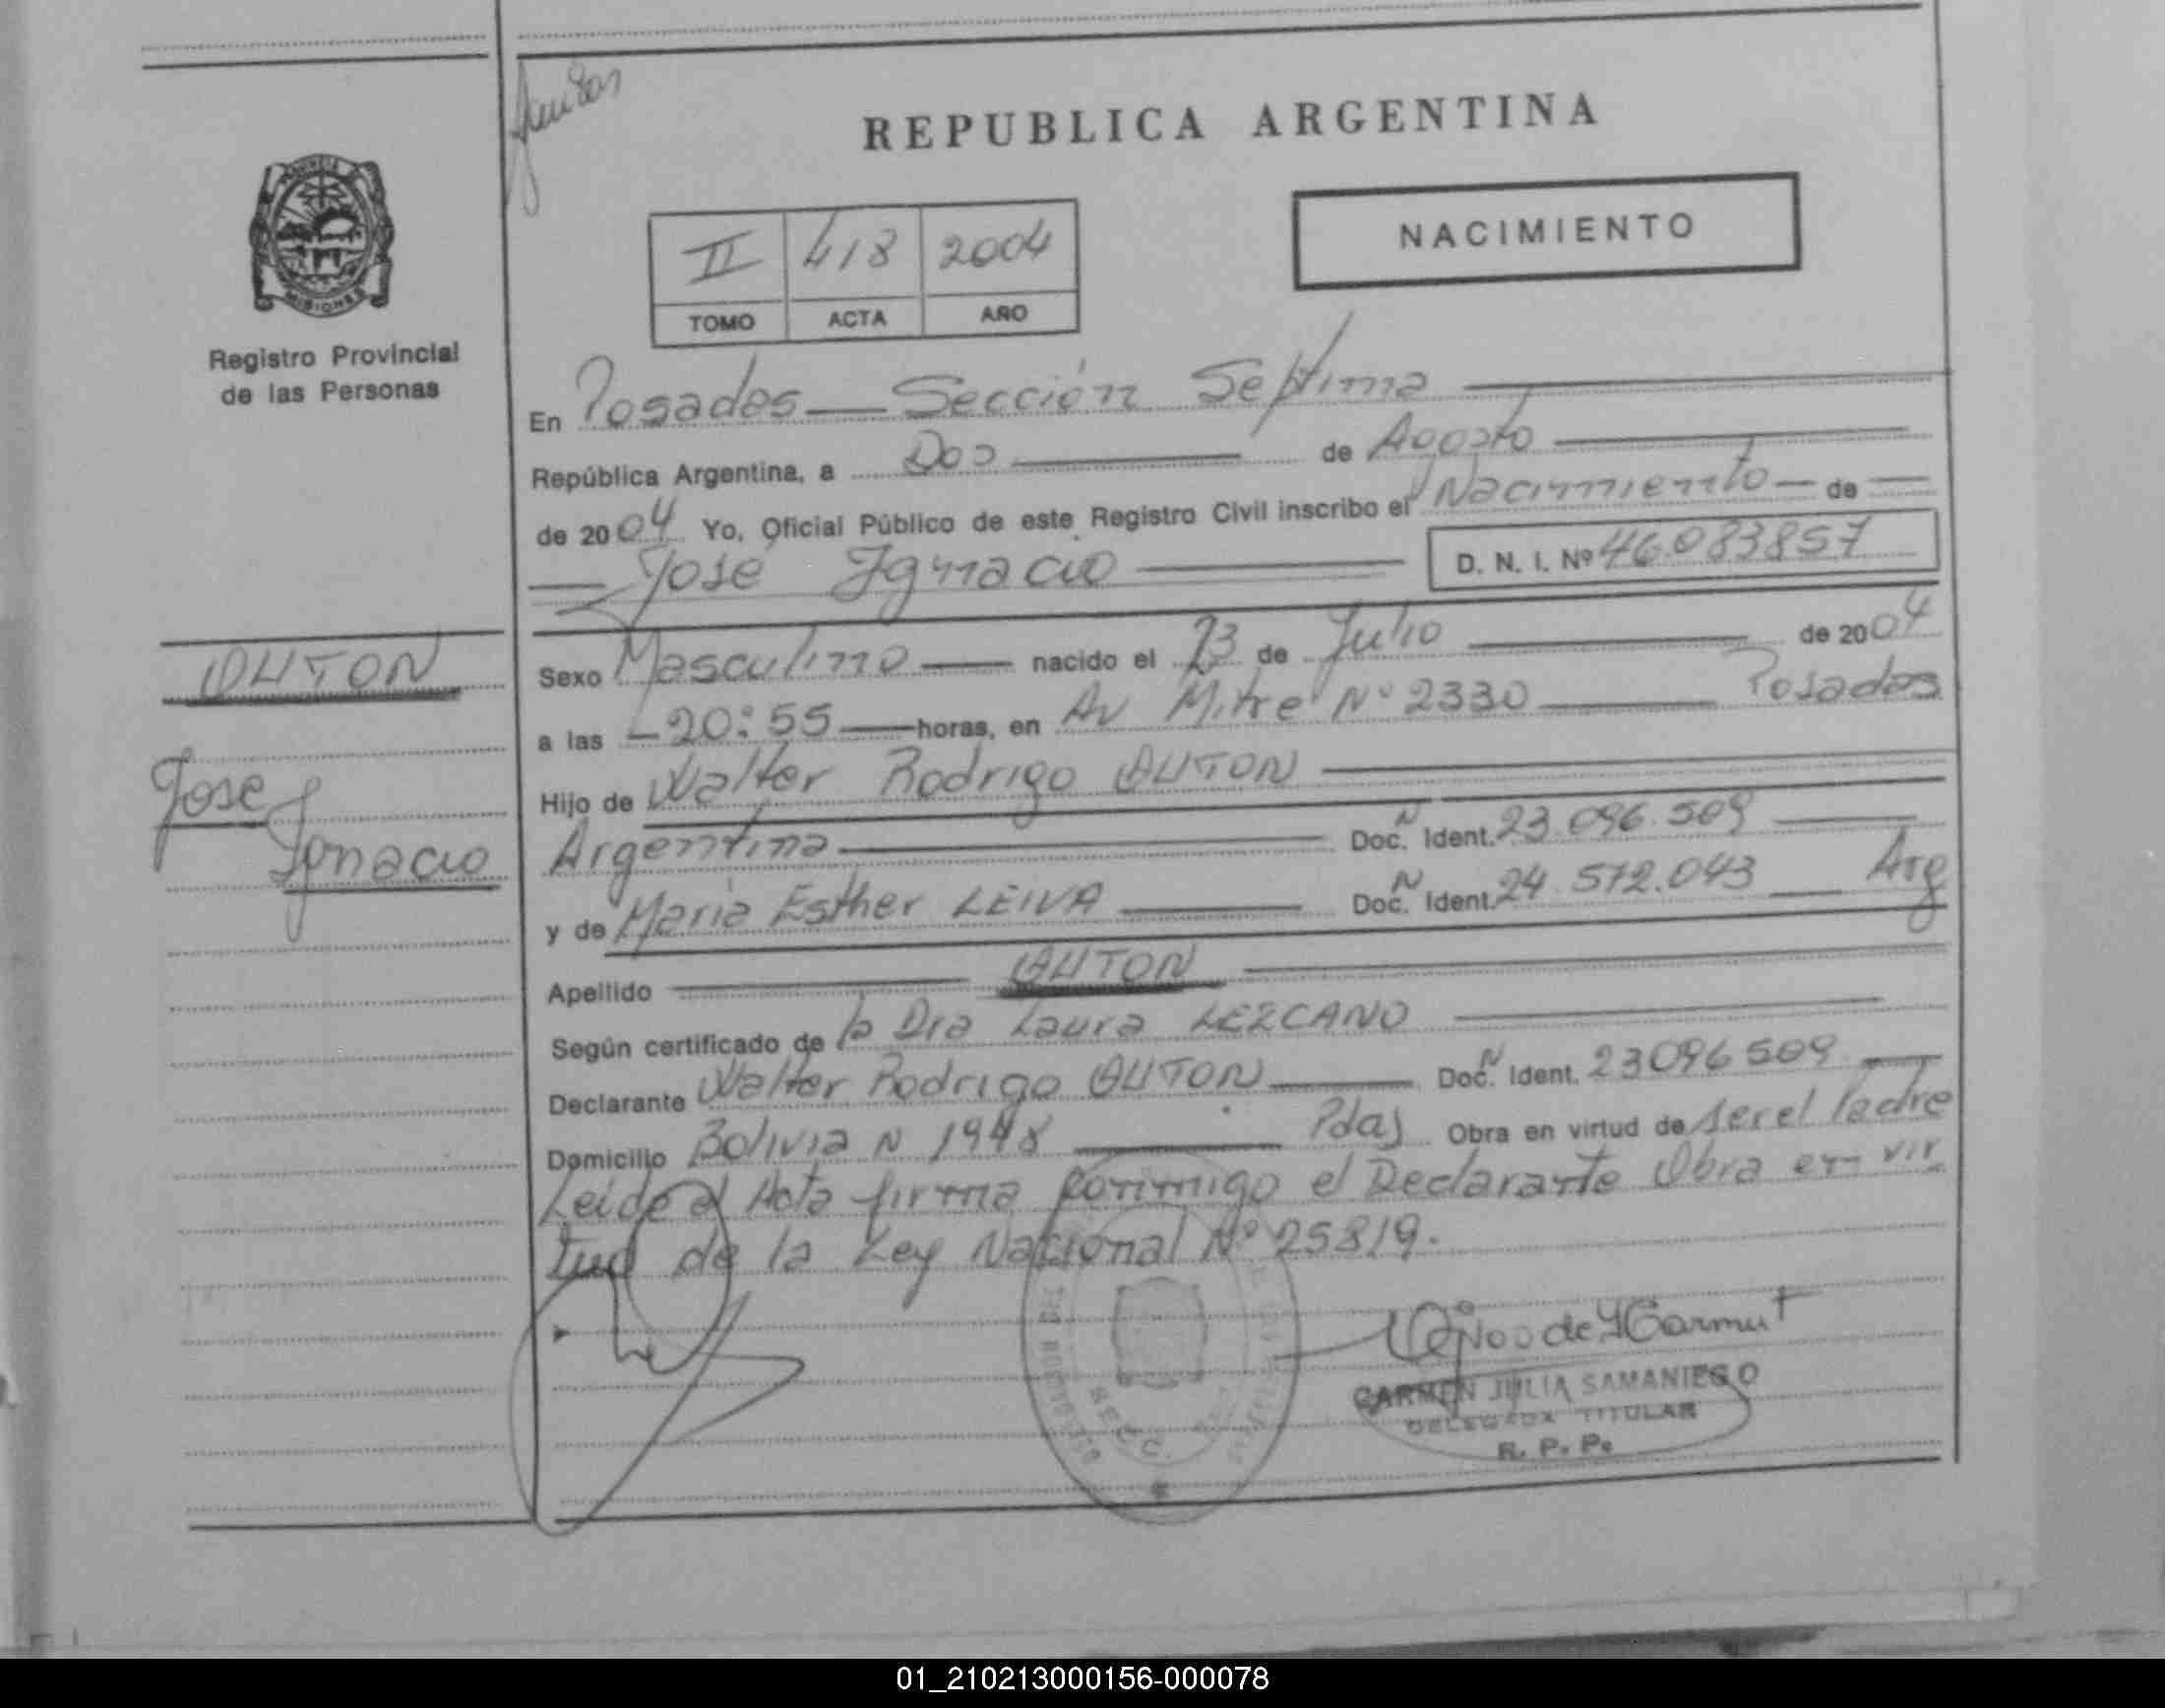 REPUBLICA ARGENTINA
NACIMIENTO
II 418 2004
TOMO ACTA AÑO
PROVINCIA
MISIONES
Registro Provincial
de las Personas
En Posadas — Sección Septima
República Argentina, a Dos de Agosto
de 2004 Yo, Oficial Público de este Registro Civil inscribo el Nacimiento de
José Ignacio D. N. I. Nº 46.083857
AUTON
Jose
Ignacio
Sexo Masculino nacido el 23 de Julio de 2004
a las 20:55 horas, en Av Mitre Nº 2330 Posadas
Hijo de Walter Rodrigo AUTON
Argentina Doc. N Ident. 23.096.509
y de Maria Esther LEIVA Doc. N Ident. 24.572.043 Arg
Apellido AUTON
Según certificado de la Dra Laura LEZCANO
Declarante Walter Rodrigo AUTON Doc. N Ident. 23096509
Domicilio Bolivia N 1948 Pdas Obra en virtud de ser el Padre
Leida el Acta firma conmigo el Declarante Obra en vir
tud de la Ley Nacional Nº 25819.
SECC.
CARMEN JULIA SAMANIEGO
DELEGADA TITULAR
R. P. P.
01_210213000156-000078